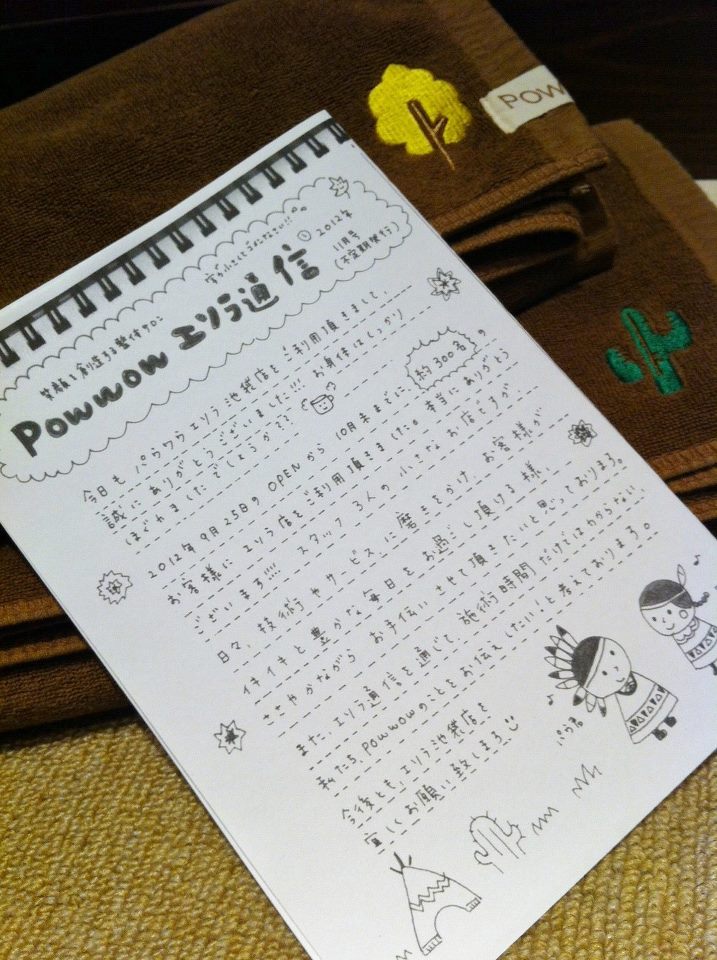 POW
字が小さくてごめんなさい!!
2012年
11月号
(不定期発行)
笑顔を創造する整体サロン
Powwow エソラ通信
今日も パウワウ エソラ池袋店を ご利用頂きまして、
誠にありがとうございました!!! お身体はしっかり
ほぐれましたでしょうか??
2012年9月25日の OPENから 10月末までに、約300名の
お客様に エソラ店をご利用頂きました。本当にありがとう
ございます!!!! スタッフ 3人の 小さな お店ですが、
日々、技術や サービスに 磨きをかけ、お客様が
イキイキと 豊かな 毎日を お過ごし頂ける様、
ささやかながら お手伝い させて頂きたいと思っております。
また、エソラ通信を 通じて、施術時間だけではわからない、
私たち、Powwowのことを お伝えしたい!と 考えております。
今後とも、エソラ池袋店を
宜しくお願い致します
パウ君